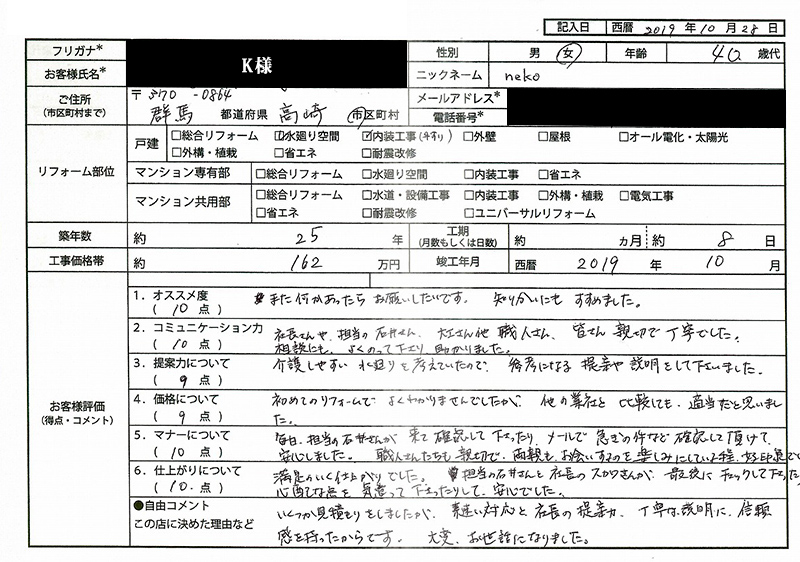 記入日 西暦 2019 年 10 月 28 日
フリガナ*
お客様氏名* K様
性別 男 女 年齢 40 歳代
ニックネーム neko
ご住所 (市区町村まで) 〒3170-0864
群馬 都道府県 高崎 市区町村
メールアドレス*
電話番号*
リフォーム部位
戸建 □総合リフォーム ☑水廻り空間 ☑内装工事(手すり) □外壁 □屋根 □オール電化・太陽光
□外構・植栽 □省エネ □耐震改修
マンション専有部 □総合リフォーム □水廻り空間 □内装工事 □省エネ
マンション共用部 □総合リフォーム □水道・設備工事 □内装工事 □外構・植栽 □電気工事
□省エネ □耐震改修 □ユニバーサルリフォーム
築年数 約 25 年 工期 (月数もしくは日数) 約 カ月 約 8 日
工事価格帯 約 162 万円 竣工年月 西暦 2019 年 10 月
お客様評価 (得点・コメント)
1.オススメ度 (10点) また何かあったら お願いしたいです。 知り合いにも すすめました。
2.コミュニケーション力 (10点) 社長さんや、担当の石井さん、大工さん他 職人さん、皆さん 親切で丁寧でした。
相談にも、よくのって下さり 助かりました。
3.提案力について (9点) 介護しやすい 水廻りを考えていたので、参考になる 提案や説明をして下さいました。
4.価格について (9点) 初めてのリフォームで よくわかりませんでしたが、他の業社と 比較しても、適当だと思いまし
た。
5.マナーについて (10点) 毎日、担当の石井さんが 来て 確認して 下さったり、メールで 急ぎの件など 確認して頂けて、
安心しました。 職人さんたちも 親切で、両親も、お会いするのを 楽しみにしている程、好印象で
6.仕上がりについて (10点) 満足のいく仕上がりでした。 担当の石井さんと 社長の スカワさんが、最後に チェックして下さった
心配な点を 気遣って 下さったりして、安心でした。
●自由コメント
この店に決めた理由など
いくつか見積もりをしましたが、素速い対応と 社長の 提案力、丁寧な説明に、信頼
感を持ったからです。 大変、お世話になりました。